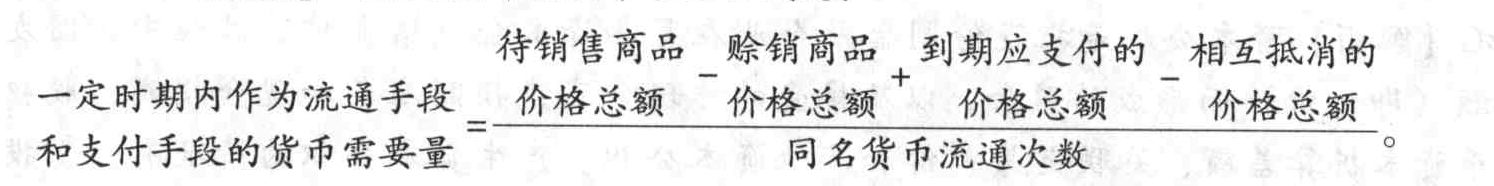 一定时期内作为流通手段
和支付手段的货币需要量
=
待销售商品 - 赊销商品 + 到期应支付的 - 相互抵消的
价格总额 价格总额 价格总额 价格总额
同名货币流通次数。